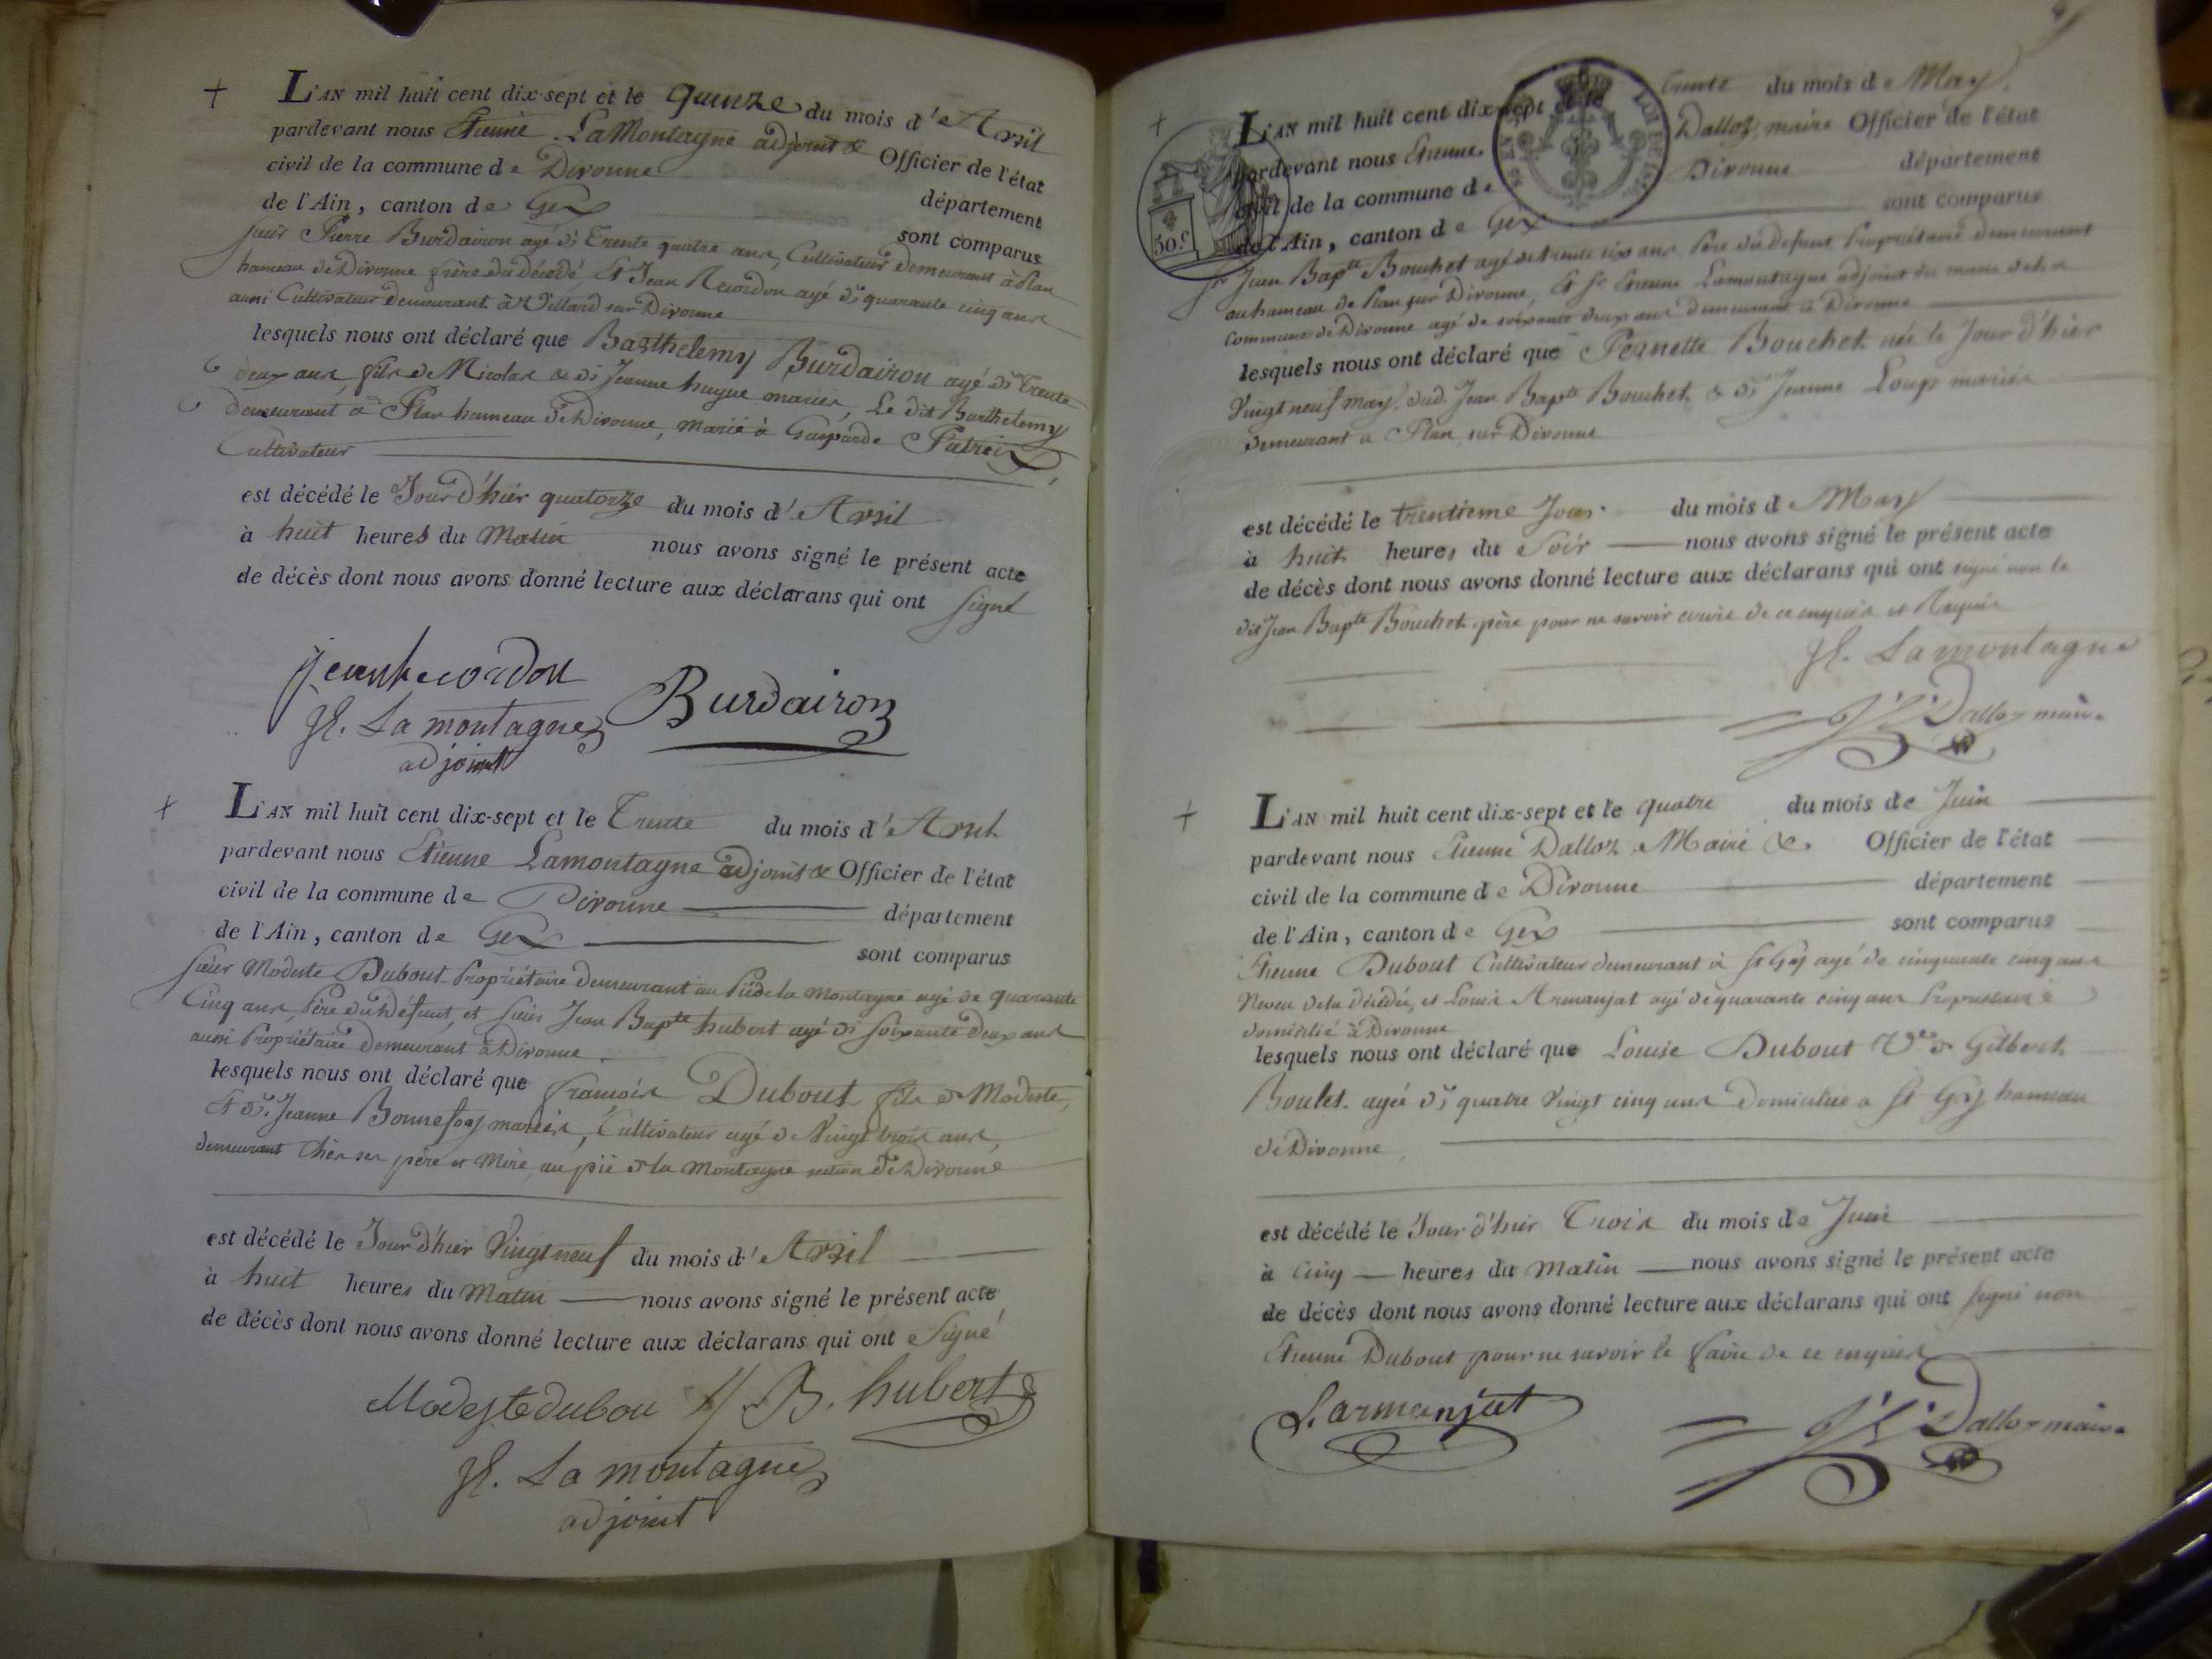 L'AN mil huit cent dix-sept et le quinze du mois d'Avril
pardevant nous Etienne LaMontagne adjoint & Officier de l'état
civil de la commune de Divonne département
de l'Ain, canton de Gex sont comparus
sieur Pierre Burdairon agé de Trente quatre ans, Cultivateur demeurant à Plan
hameau de Divonne frère du décédé, Et Jean Recordon agé de quarante cinq ans
aussi Cultivateur demeurant à Villard sur Divonne
lesquels nous ont déclaré que Barthelemy Burdairon agé de Trente
deux ans, fils de Nicolas & de Jeanne hugue mariés, Le dit Barthelemy
demeurant à Plan hameau de Divonne, marié à Gasparde Patrei
Cultivateur
est décédé le Jour d'hier quatorze du mois d'Avril
à huit heures du Matin nous avons signé le présent acte
de décès dont nous avons donné lecture aux déclarans qui ont signé
jean Recordon
JE. La montagne Burdairon
adjoint
L'AN mil huit cent dix-sept et le Trente du mois d'Avril
pardevant nous Etienne Lamontagne adjoint & Officier de l'état
civil de la commune de Divonne département
de l'Ain, canton de Gex sont comparus
sieur Modeste Dubout Propriétaire demeurant au Pié de la montagne agé de quarante
Cinq ans, Père du Défunt, et sieur Jean Bapte hubert agé de soixante deux ans
aussi Propriétaire demeurant à Divonne
lesquels nous ont déclaré que françois Dubout fils de Modeste,
Et de Jeanne Bonnefoy mariés, Cultivateur agé de Vingt trois ans,
demeurant Chés ses père et Mère, au pié de la Montagne de Divonne
est décédé le Jour d'hier Vingt neuf du mois d'Avril
à huit heures du Matin nous avons signé le présent acte
de décès dont nous avons donné lecture aux déclarans qui ont signé
Modeste dubou J B. hubert
JE. La montagne
adjoint
50.c
L'AN mil huit cent dix-sept et le trente du mois de May
pardevant nous Etienne Dalloz, maire Officier de l'état
civil de la commune de Divonne département
de l'Ain, canton de Gex sont comparus
Sr Jean Bapte Bouchet agé de trente six ans Père du défunt Propriétaire demeurant
au hameau de Plan sur Divonne, Et Sr Etienne Lamontagne adjoint du maire de la
Commune de Divonne agé de soixante deux ans demeurant à Divonne
lesquels nous ont déclaré que Pernette Bouchet née le Jour d'hier
Vingt neuf may, dud. Jean Bapte Bouchet & de Jeanne Loup mariés
demeurant à Plan sur Divonne
est décédé le trentième Jour du mois de May
à huit heures du Soir nous avons signé le présent acte
de décès dont nous avons donné lecture aux déclarans qui ont signé non le
dit Jean Bapte Bouchet père pour ne savoir écrire de ce enquis et Requis
JE. La montagne
Dalloz maire
L'AN mil huit cent dix-sept et le quatre du mois de Juin
pardevant nous Etienne Dalloz Maire & Officier de l'état
civil de la commune de Divonne département
de l'Ain, canton de Gex sont comparus
Etienne Dubout Cultivateur demeurant à St Gy agé de cinquante cinq ans
Neveu de la décédée, et Louis Armanjat agé de quarante cinq ans Propriétaire
domicilié à Divonne
lesquels nous ont déclaré que Louise Dubout Ve de Gilbert
Boulet agée de quatre Vingt cinq ans domiciliée à St Gy hameau
de Divonne
est décédé le Jour d'hier Trois du mois de Juin
à Cinq heures du Matin nous avons signé le présent acte
de décès dont nous avons donné lecture aux déclarans qui ont signé non
Etienne Dubout pour ne savoir le faire de ce enquis
L. armanjat Dalloz maire